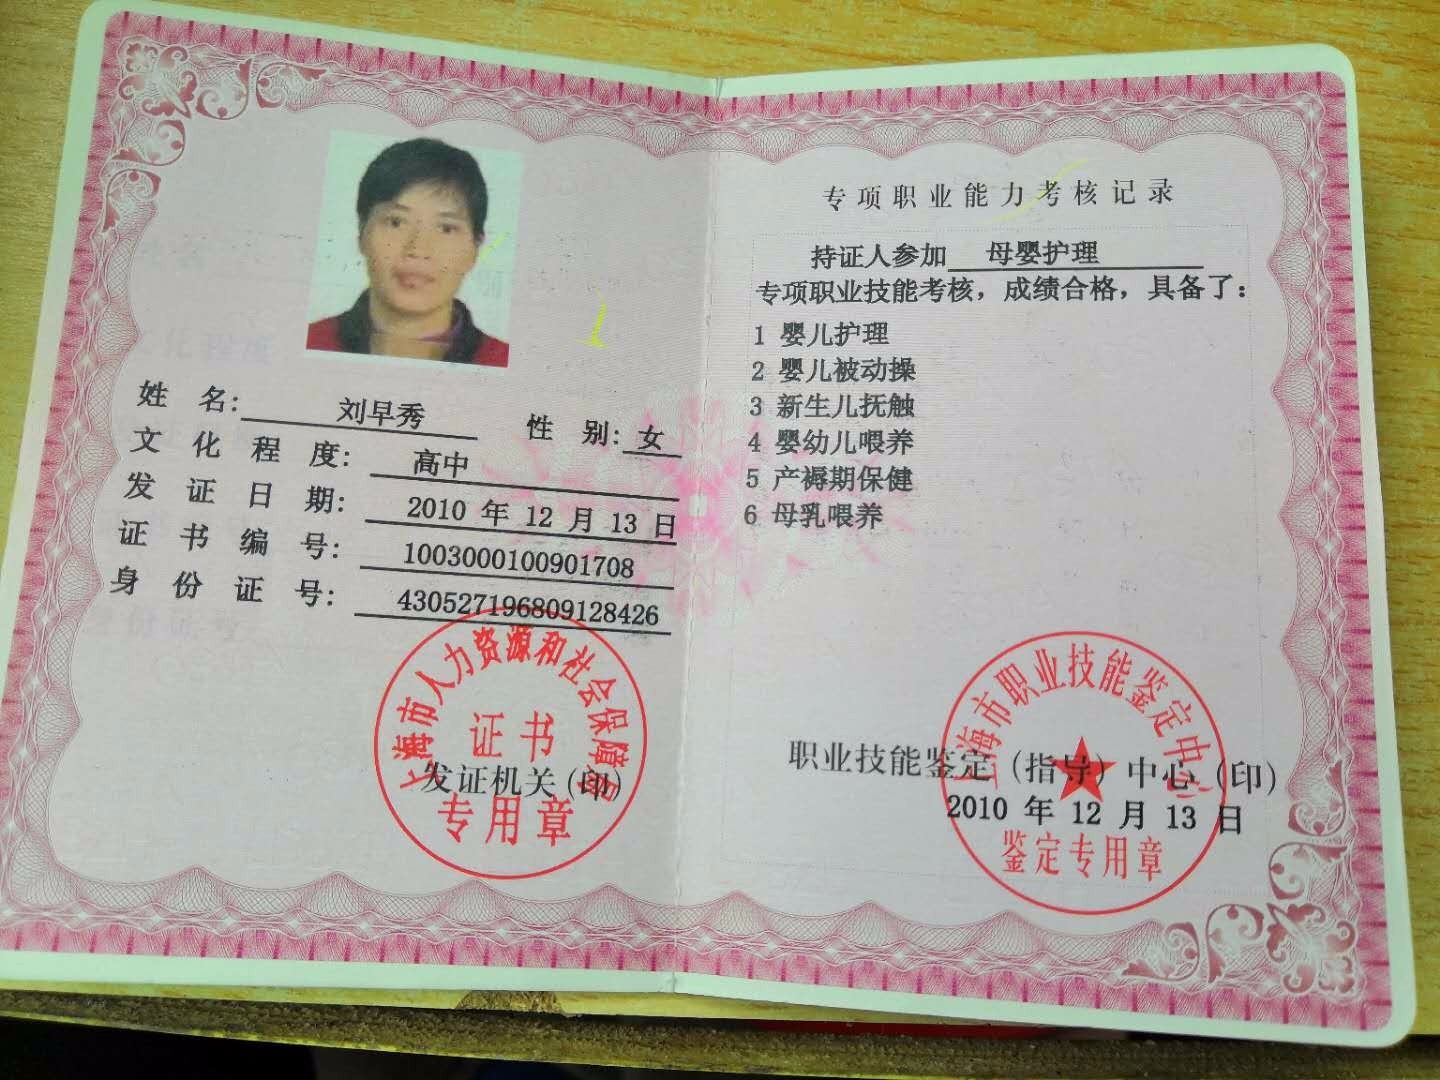 姓 名: 刘早秀 性 别: 女
文 化 程 度: 高中
发 证 日 期: 2010 年 12 月 13 日
证 书 编 号: 1003000100901708
身 份 证 号: 430527196809128426
上海市人力资源和社会保障局
证书
发证机关(印)
专用章
专项职业能力考核记录
持证人参加 母婴护理
专项职业技能考核，成绩合格，具备了：
1 婴儿护理
2 婴儿被动操
3 新生儿抚触
4 婴幼儿喂养
5 产褥期保健
6 母乳喂养
上海市职业技能鉴定中心
职业技能鉴定(指导)中心(印)
2010 年 12 月 13 日
鉴定专用章